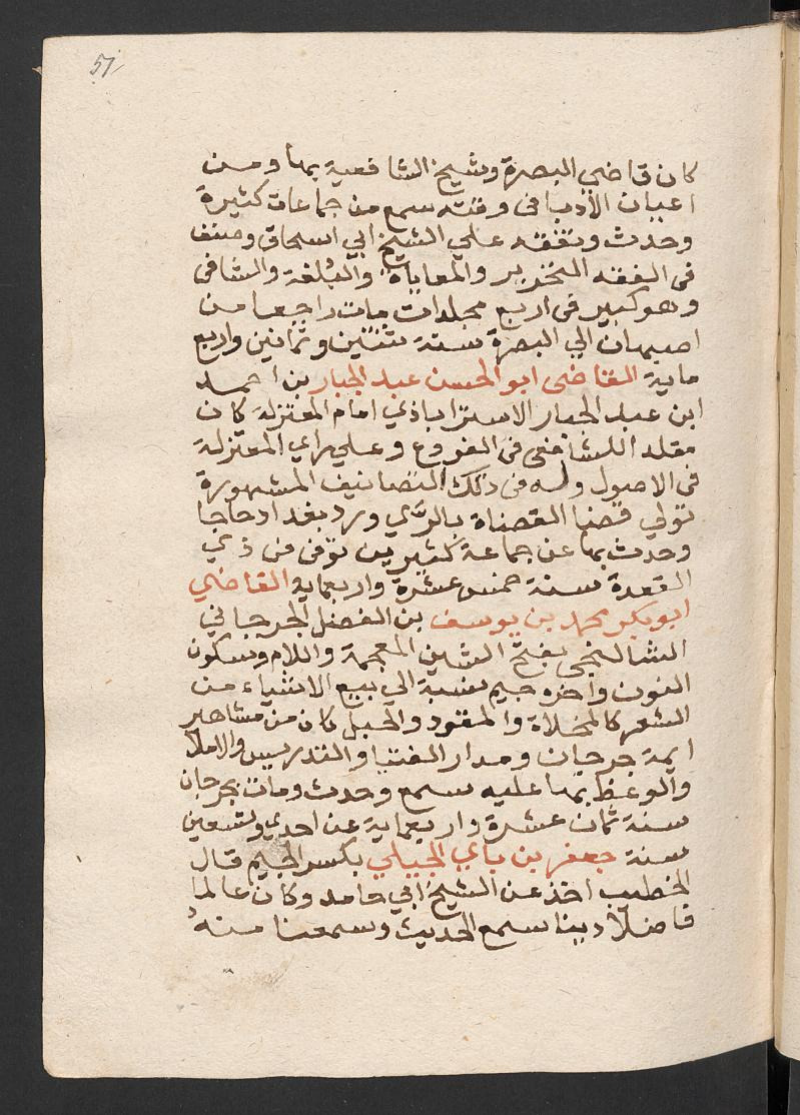 51
كان قاضي البصرة وشيخ الشافعية بها ومن
اعيان الأدبا فى وقته سمع من جماعات كثيرة
وحدث وتفقه علي الشيخ ابي اسحاق وصنف
فى الفقه التحرير والمعاياة والبُلغة والشافى
وهو كبير فى اربع مجلدات مات راجعا من
اصبهان الي البصرة سنة ثنتين وثمانين واربع
ماية القاضى ابو الحسن عبد الجبار بن احمد
ابن عبد الجبار الاستراباذي امام المعتزلة كان
مقلدا للشافعى فى الفروع وعلي راي المعتزلة
فى الاصول وله فى ذلك التصانيف المشهورة
تولي قضا القضاة بالرَّي ورد بغداد حاجا
وحدث بها عن جماعة كثيرين توفى فى ذي
القعدة سنة خمس عشرة واربعماية القاضي
ابو بكر محمد بن يوسف بن الفضل الجرجاني
الشالنجى بفتح الشين المعجمة واللام وسكون
النون واخره جيم نسبة الي بيع الاشياء من
الشعر كالمخلاة والمقود والحبل كان من مشاهير
ايمة جرجان ومدار الفتيا والتدريس والاملا
والوعظ بها عليه سمع وحدث ومات بجرجان
سنة ثمان عشرة واربعماية عن احدي وتسعين
سنة جعفر بن باي الجيلي بكسر الجيم قال
الخطيب اخذ عن الشيخ ابي حامد وكان عالما
فاضلًا دينا سمع الحديث وسمعنا منهُ